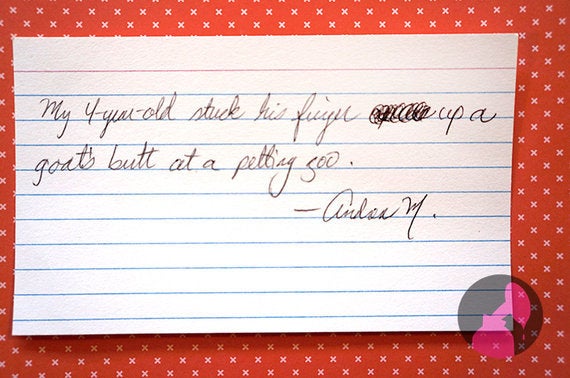 My 4-year-old stuck his finger up a
goat's butt at a petting zoo.
—Andrea M.